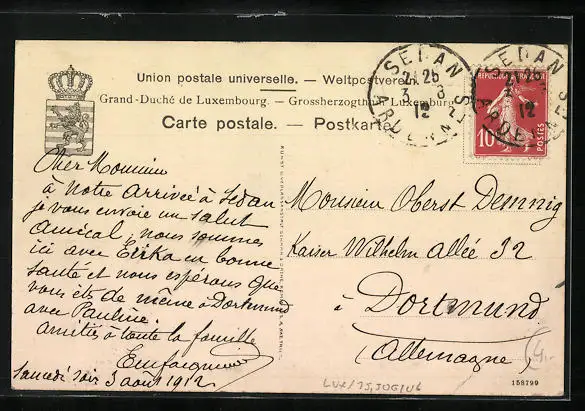 Union postale universelle. — Weltpostverein.
Grand-Duché de Luxembourg. — Grossherzogthum Luxemburg
Carte postale. — Postkarte
SEDAN
21 25
3 8
12
ARDENNES
SEDAN
12
ARDENNES
REPUBLIQUE FRANÇAISE
10
POSTES
Cher Monsieur
à Notre arrivée à Sedan
je vous envoie un salut
Amical, nous sommes
ici avec Erika en bonne
santé et nous espérons que
vous êts de même à Dortmund
avec Pauline.
amitiés à toute la famille
Samedi soir 3 août 1912
Monsieur Oberst Demnig
Kaiser Wilhelm Allée 32
à Dortmund
(Allemagne)
(4.-
158799